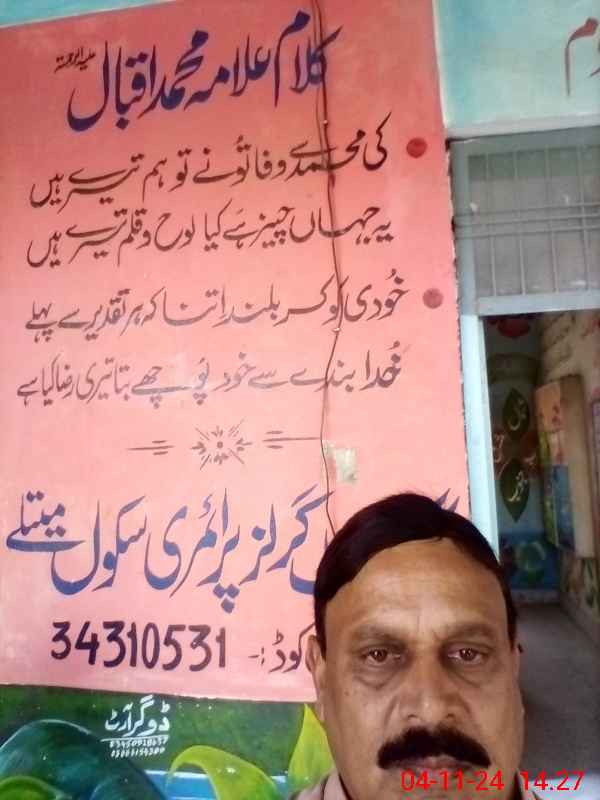 کلام علامہ محمد اقبال علیہ الرحمتہ
کی محمدؐ سے وفا تُو نے تو ہم تیرے ہیں
یہ جہاں چیز ہے کیا لوح و قلم تیرے ہیں
خُودی کو کر بلند اتنا کہ ہر تقدیر سے پہلے
خُدا بندے سے خود پُوچھے بتا تیری رضا کیا ہے
گرلز پرائمری سکول میتلے
کوڈ:- 34310531
ڈوگر آرٹ
04-11-24 14.27